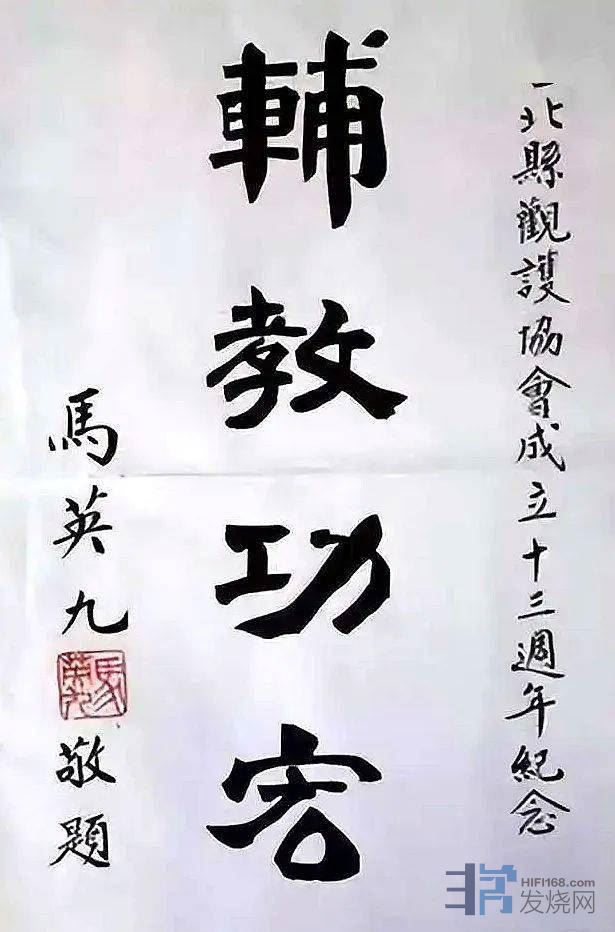 北縣觀護協會成立十三週年紀念
輔教功宏
馬英九
敬題
馬英九
HIFI168.COM
发烧网